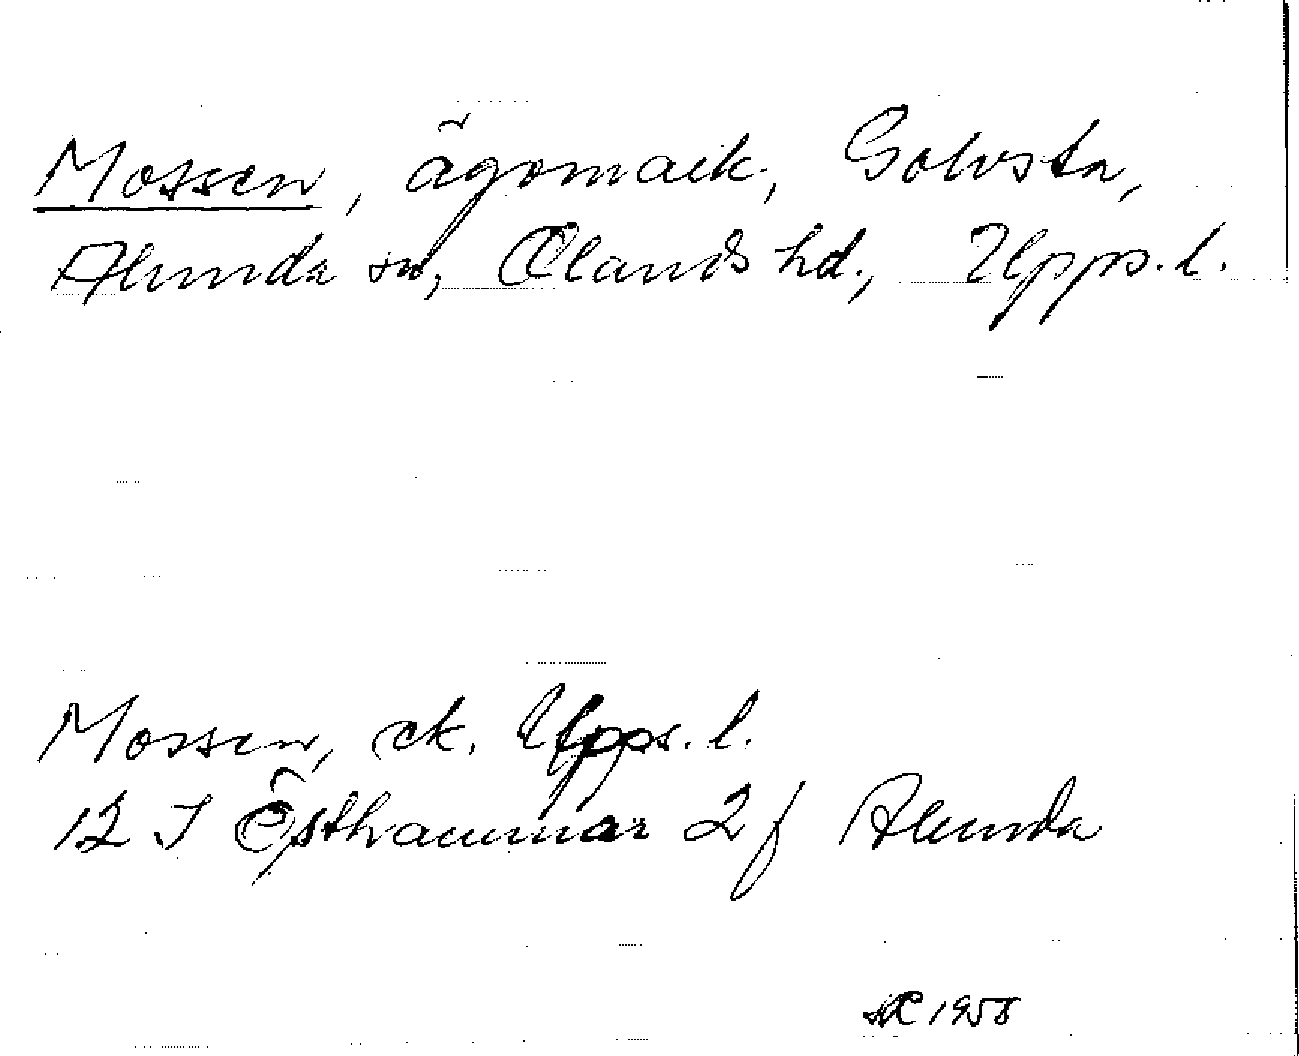 Mossen, ägomark, Golvsta,
Alunda sn, Olands hd., Upps. l.
Mossen, ek. Upps. l.
12 I Östhammar 2 f Alunda
1958